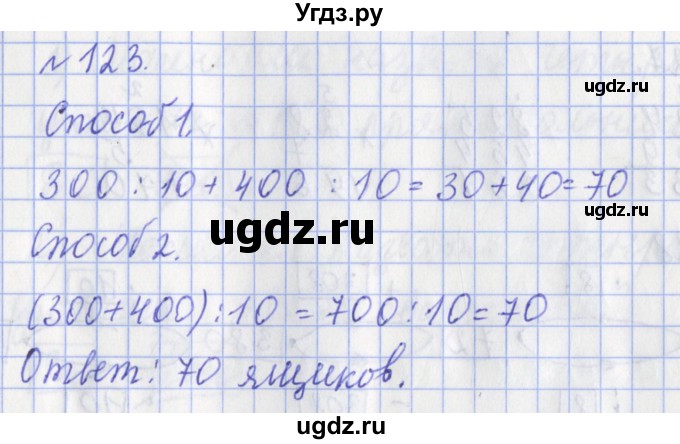 Угдз.ру
№ 123.
ugdz.ru
Способ 1.
300 : 10 + 400 : 10 = 30 + 40 = 70
ugdz.ru
ugdz.ru
Способ 2.
ugdz.ru
(300+400) : 10 = 700 : 10 = 70
Ответ: 70 ящиков.
ugdz.ru
ugdz.ru